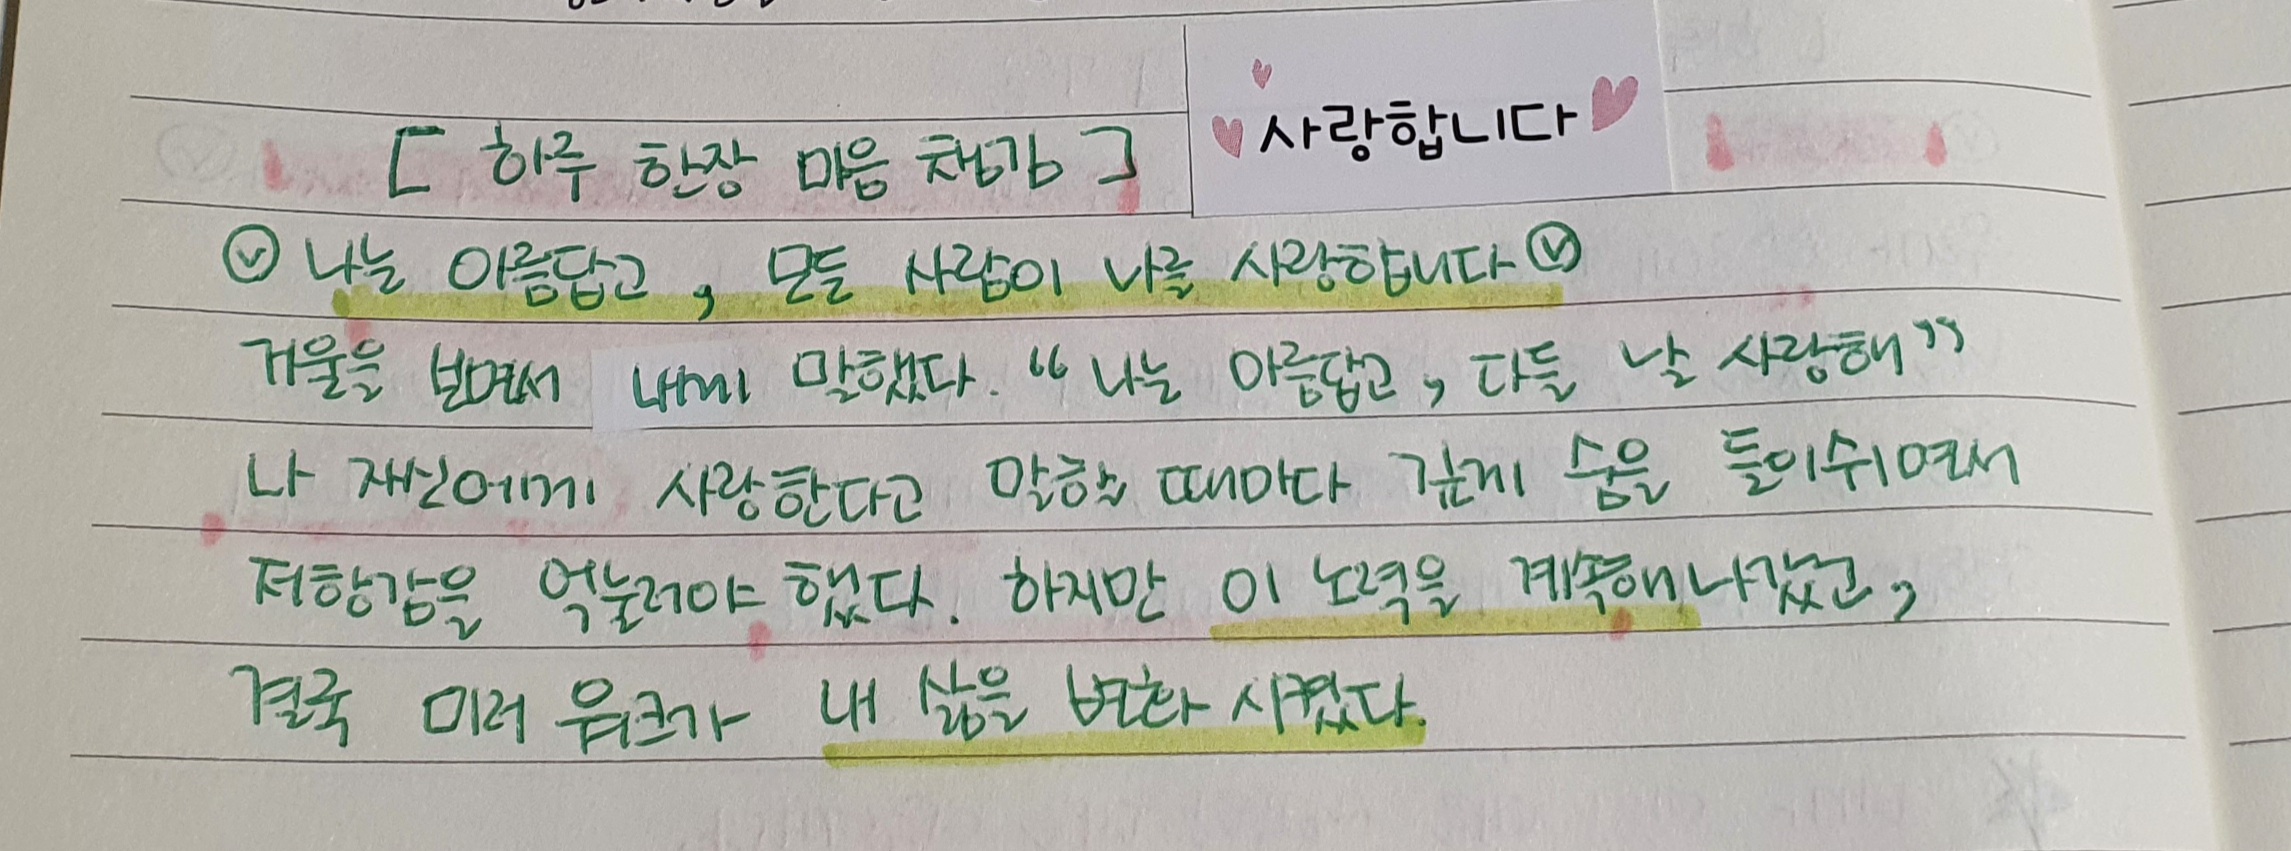 [ 하루 한장 마음 챙김 ]
사랑합니다
나는 아름답고, 모든 사람이 나를 사랑합니다
거울을 보면서 내게 말했다. “나는 아름답고, 다들 날 사랑해”
나 재신에게 사랑한다고 말할 때마다 깊게 숨을 들이쉬면서
저항감을 억눌러야 했다. 하지만 이 노력을 계속해나갔고,
결국 미러 워크가 내 삶을 변화 시켰다.